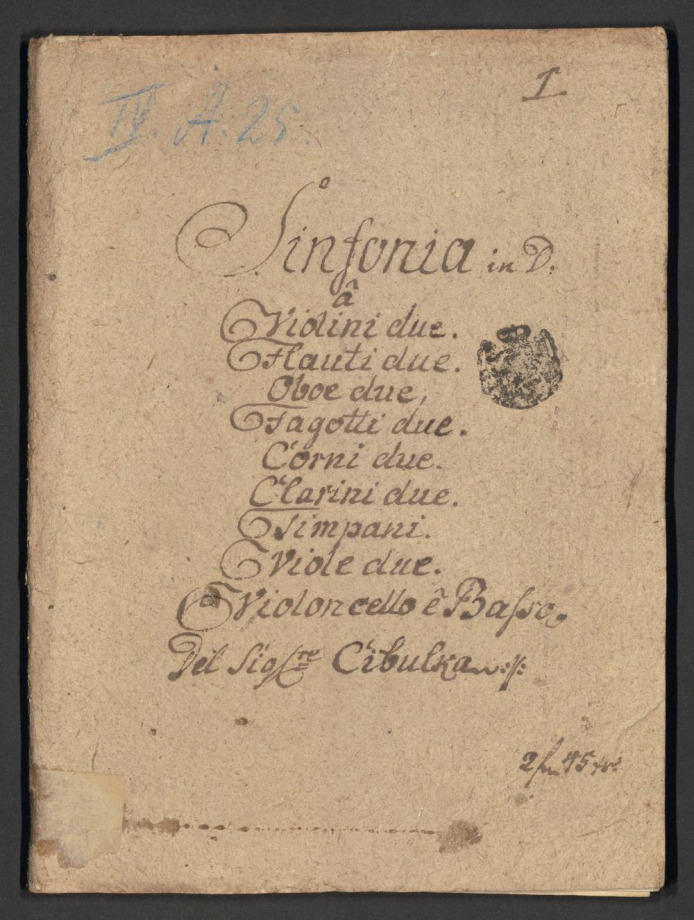 IV. A. 25.
I
Sinfonia in D.
â
Violini due.
Flauti due.
Oboe due,
Fagotti due.
Corni due.
Clarini due.
Timpani.
Viole due.
Violoncello ê Baſso,
Del Sig:re Cibulka
2 45